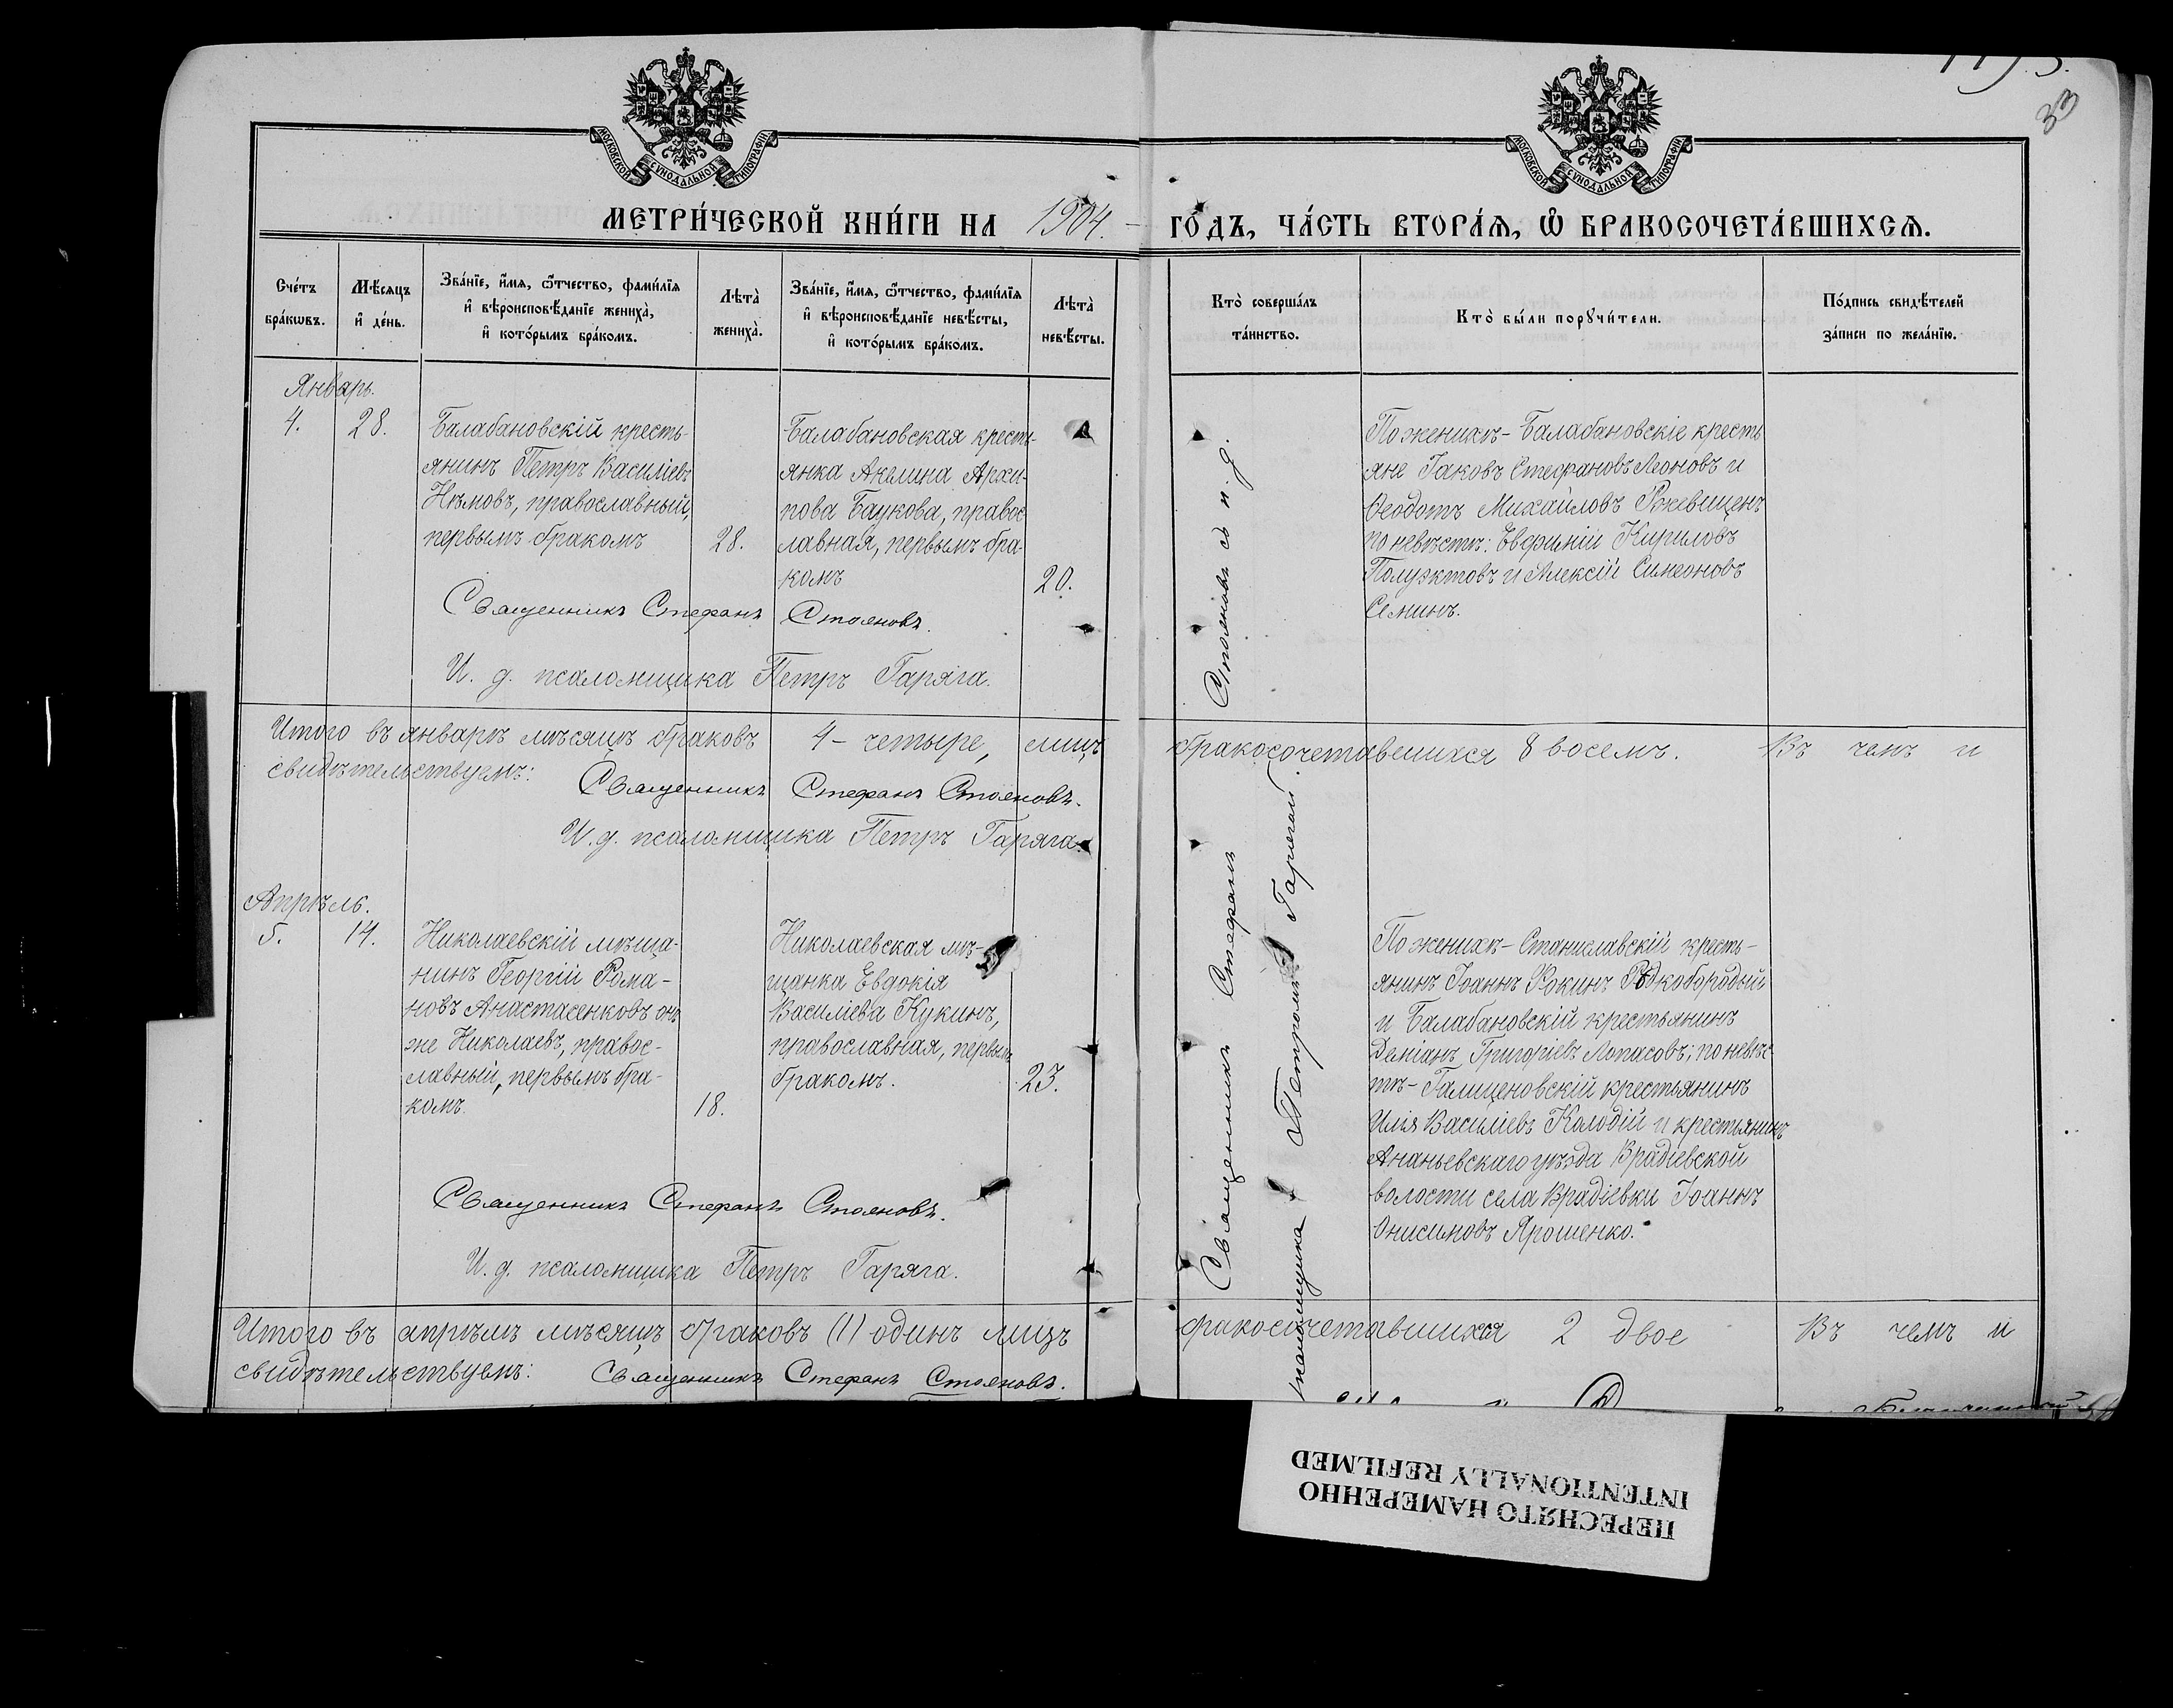 33
МОСКОВСКОЙ СѴНОДАЛЬНОЙ ТИПОГРАФІИ
МОСКОВСКОЙ СѴНОДАЛЬНОЙ ТИПОГРАФІИ
МЕТРИ́ЧЕСКОЙ КНИ́ГИ НА 1904. ГО́ДЪ, ЧА́СТЬ ВТОРА́Ѧ, Ѽ БРАКОСОЧЕТА́ВШИХСѦ.
Сче́тъ
бра́кѡвъ.
Мѣ́сѧцъ
и҆ де́нь.
Зва́нїе, и҆́мѧ, ѻ҆́тчество, фами́лїѧ
и҆ вѣроисповѣ́данїе жениха̀,
и҆ кото́рымъ бра́комъ.
Лѣта̀
жениха̀.
Зва́нїе, и҆́мѧ, ѻ҆́тчество, фами́лїѧ
и҆ вѣроисповѣ́данїе невѣ́сты,
и҆ кото́рымъ бра́комъ.
Лѣта̀
невѣ́сты.
Кто̀ соверша́лъ
та́инство.
Кто̀ бы́ли порꙋчи́тели.
По́дпись свидѣ́телей
за́писи по жела́нїю.
Январь.
4.
28.
Балабановскій кресть-
янинъ Петръ Василіевъ
Нѣмовъ, православный,
первымъ бракомъ
28.
Балабановская кресть-
янка Акилина Архи-
пова Баукова, правос
лавная, первымъ бра-
комъ
20.
Священникъ Стефанъ Стояновъ.
И. д. псаломщика Петръ Гаряга.
Стояновъ съ и. д.
По женихѣ - Балабановскіе кресть
яне Іаковъ Стефановъ Леоновъ и
Ѳеодотъ Михайловъ Ржевиценъ
по невѣстѣ: Евфимій Кириловъ
Полуэктовъ и Алексій Симеоновъ
Семинъ.
Итого въ январѣ мѣсяцѣ браковъ 4 - четыре, лицъ бракосочетавшихся 8 восемъ. Въ чемъ и
свидѣтельствуемъ: Священникъ Стефанъ Стояновъ.
И. д. псаломщика Петръ Гаряга.
Апрѣль.
5.
14.
Николаевскій мѣща-
нинъ Георгій Рома-
новъ Анастасенковъ онъ
же Николаевъ, правос-
славный, первымъ бра-
комъ.
18.
Николаевская мѣ-
щанка Евдокія
Василіева Кукинъ,
православная, первымъ
бракомъ.
23.
Священникъ Стефанъ Стояновъ.
И. д. псаломщика Петръ Гаряга.
Священникъ Стефанъ
псаломщика Петромъ Гарягой
По женихѣ - Станиславскій кресть-
янинъ Іоаннъ Фокинъ Рѣдкобородый
и Балабановскій крестьянинъ
Деміанъ Григоріевъ Лопасовъ; по невѣс-
тѣ - Галиценовскій крестьянинъ
Илія Василіевъ Колодій и крестьянинъ
Ананьевскаго уѣзда Врадіевской
волости села Врадіевки Іоаннъ
Онисимовъ Ярошенко.
Итого въ апрѣлѣ мѣсяцѣ браковъ (1) одинъ лицъ бракосочетавшихся 2 двое Въ чемъ и
свидѣтельствуемъ: Священникъ Стефанъ Стояновъ.
ПЕРЕСНЯТО НАМЕРЕННО
INTENTIONALLY REFILMED